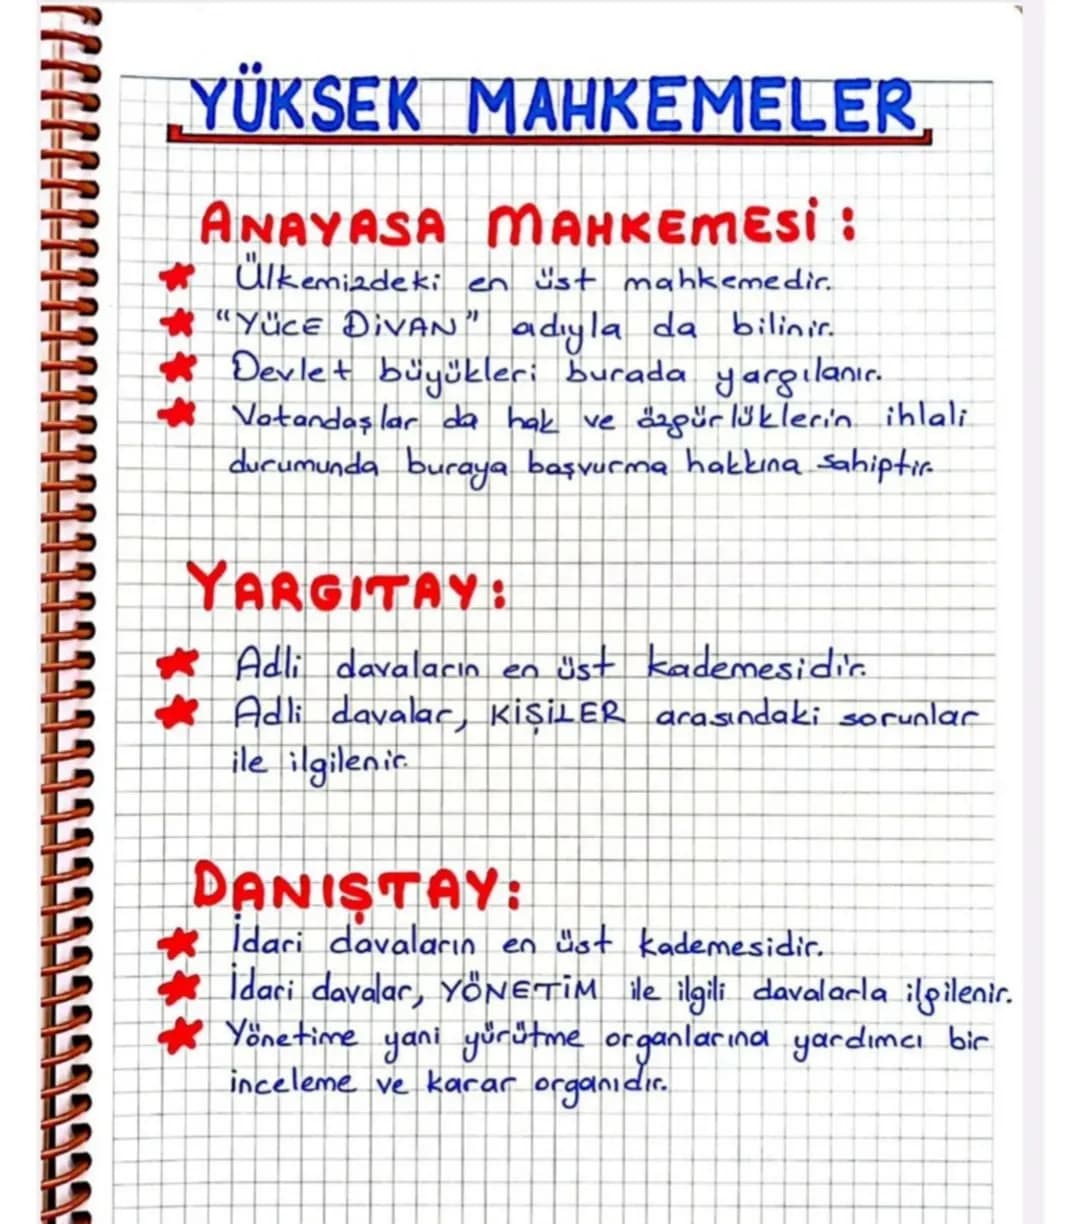 YÜKSEK MAHKEMELER
ANAYASA MAHKEMESİ:
Ülkemizdeki en üst mahkemedir.
"YÜCE DİVAN" adıyla da bilinir.
Devlet büyükleri burada yargılanır.
Vatandaşlar da hak ve özgürlüklerin ihlali
durumunda buraya başvurma hakkına sahiptir.
YARGITAY:
Adli davaların en üst kademesidir.
Adli davalar, KİŞİLER arasındaki sorunlar
ile ilgilenir.
DANIŞTAY:
İdari davaların en üst kademesidir.
İdari davalar, YÖNETİM ile ilgili davalarla ilgilenir.
Yönetime yani yürütme organlarına yardımcı bir
inceleme ve karar organıdır.